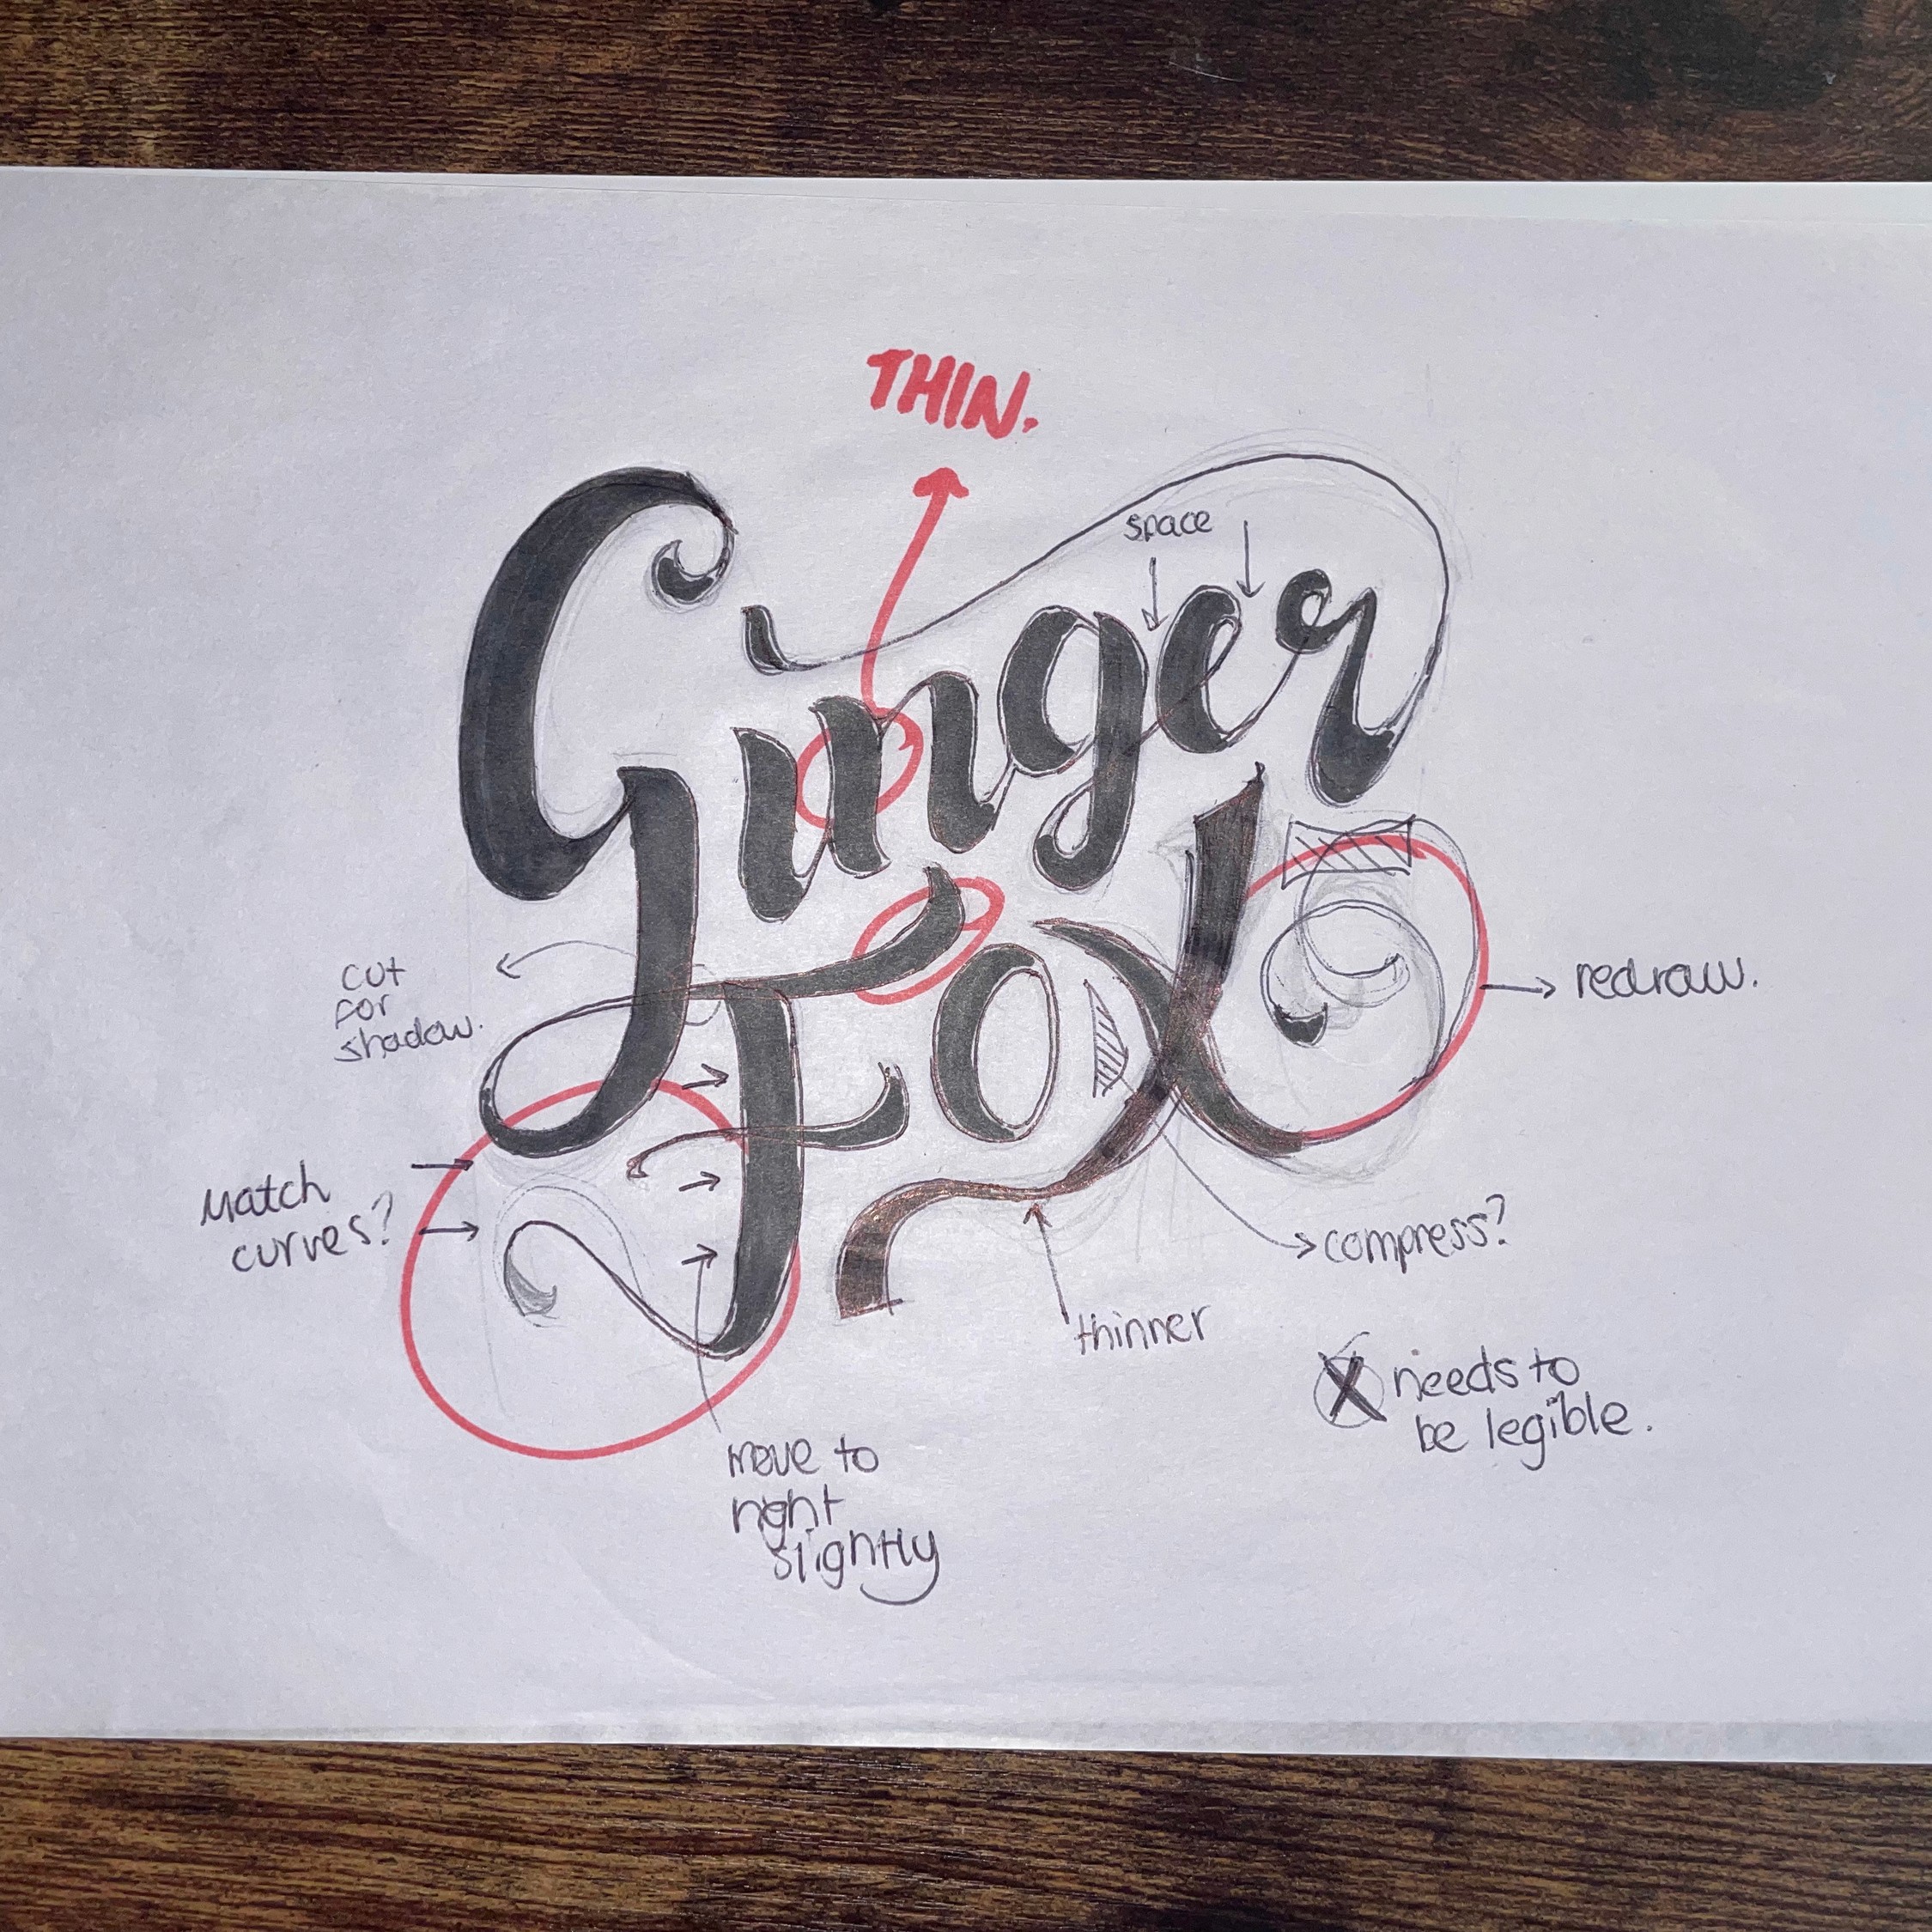 THIN.
space
Ginger
Fox
cut
for
shadow.
redraw.
Match
curves?
compress?
thinner
X needs to
be legible.
move to
right
slightly